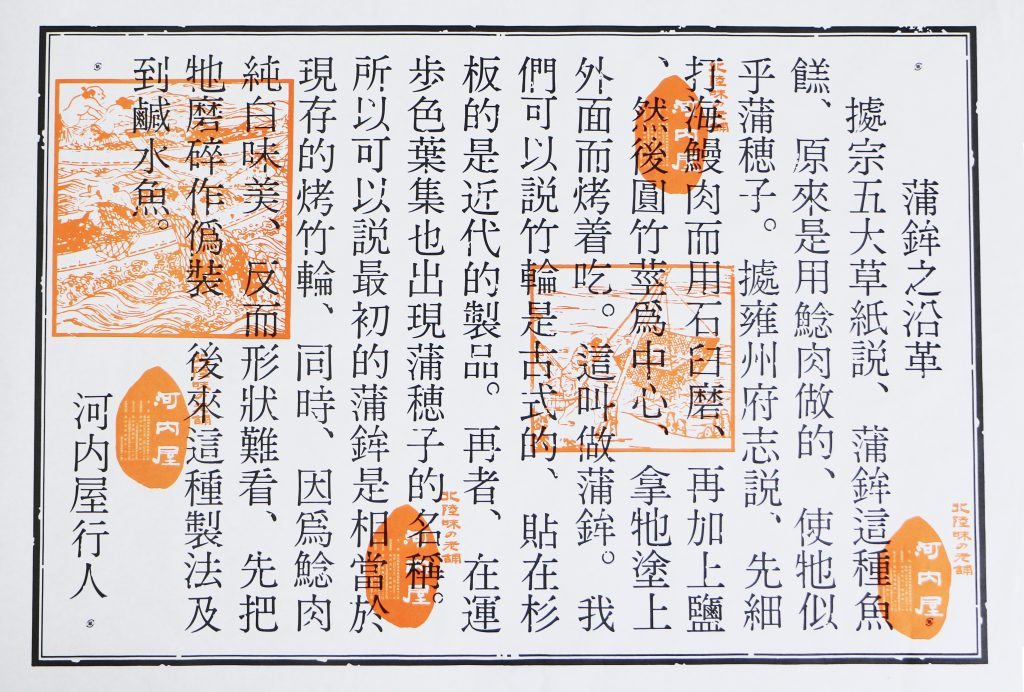 蒲鉾之沿革
據宗五大草紙説、蒲鉾這種魚
餻、原來是用鯰肉做的、使牠似
乎蒲穂子。據雍州府志説、先細
打海鰻肉而用石臼磨、再加上鹽
、然後圓竹莖爲中心、拿牠塗上
外面而烤着吃。這叫做蒲鉾。我
們可以説竹輪是古式的、貼在杉
板的是近代的製品。再者、在運
歩色葉集也出現蒲穂子的名稱。
所以可以説最初的蒲鉾是相當於
現存的烤竹輪、同時、因爲鯰肉
純白味美、反而形狀難看、先把
牠磨碎作僞裝 後來這種製法及
到鹹水魚。
河内屋行人
北陸味の老舗
河内屋
北陸味の老舗
河内屋
北陸味の老舗
河内屋
河内屋